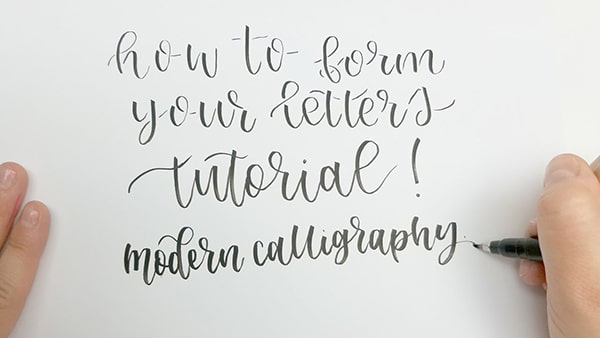 how to form
your letters
tutorial!
modern calligraphy